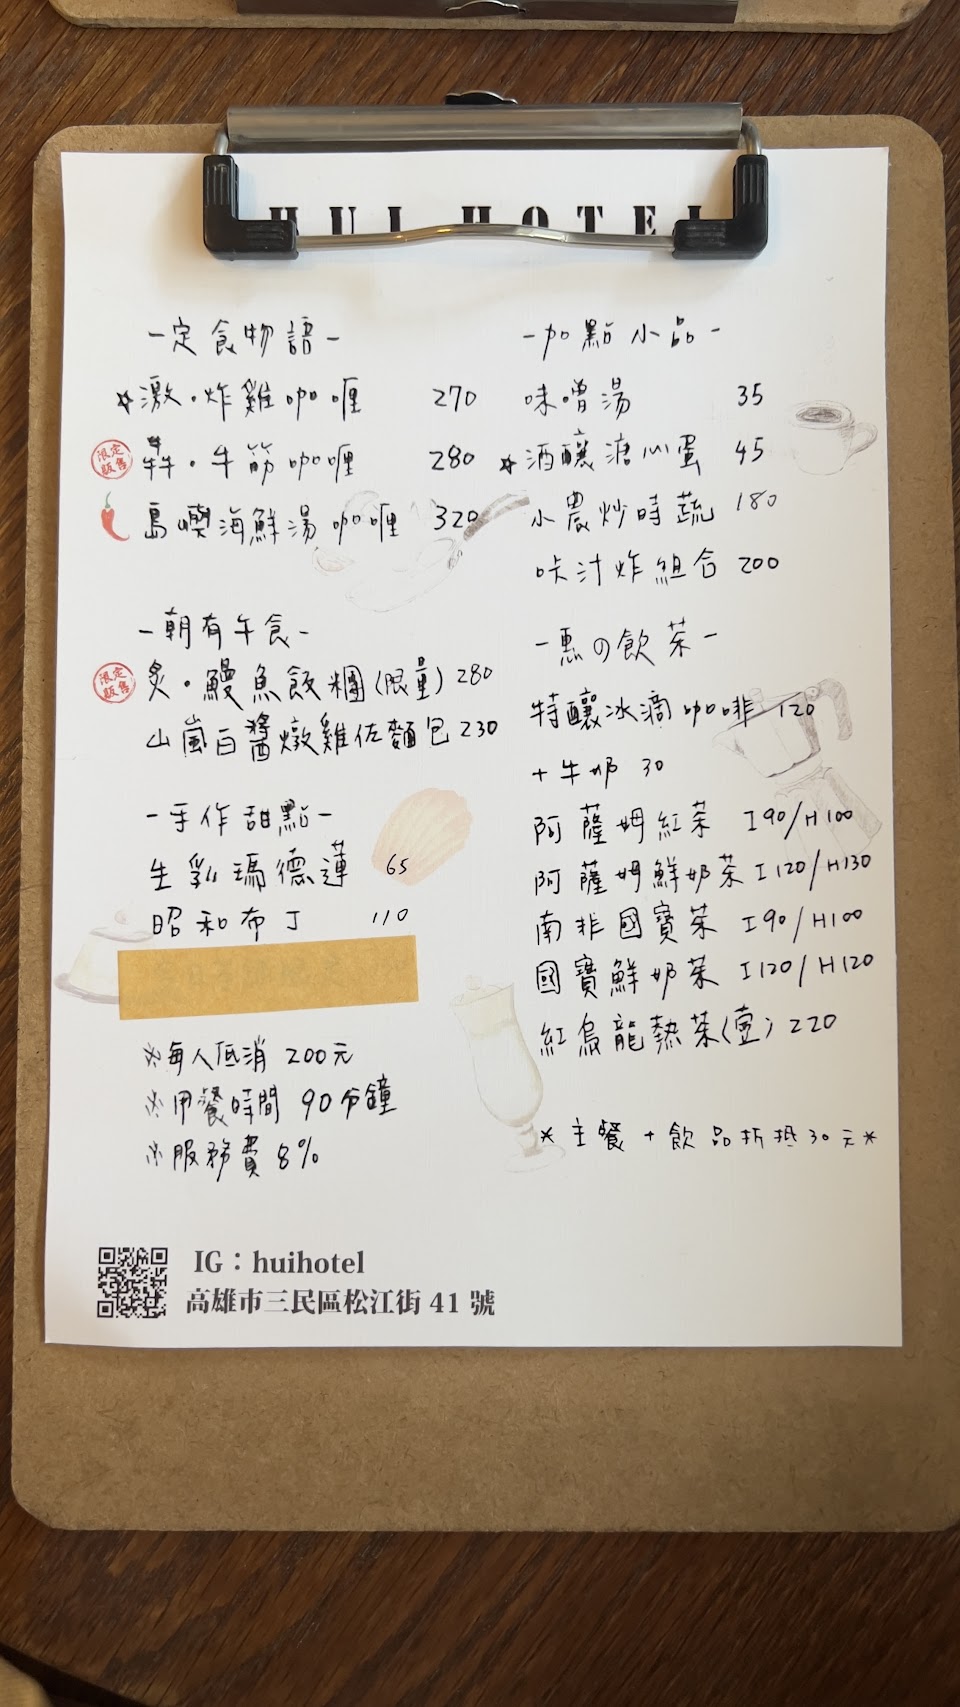 HUI HOTEL
-定食物語-
☆激·炸雞咖喱 270
限定販售
犇·牛筋咖喱 280
島嶼海鮮湯咖喱 320
-朝有午食-
限定販售
炙·鰻魚飯糰(限量) 280
山嵐白醬燉雞佐麵包 230
-手作甜點-
生乳瑪德蓮 65
昭和布丁 110
※每人低消 200元
※用餐時間 90分鐘
※服務費 8%
-加點小品-
味噌湯 35
☆酒釀溏心蛋 45
小農炒時蔬 180
咔汁炸組合 200
-惠の飲茶-
特釀冰滴咖啡 120
+牛奶 30
阿薩姆紅茶 I90/H100
阿薩姆鮮奶茶 I120/H130
南非國寶茶 I90/H100
國寶鮮奶茶 I120/H120
紅烏龍熱茶(壺) 220
*主餐+飲品折抵30元*
IG：huihotel
高雄市三民區松江街 41 號